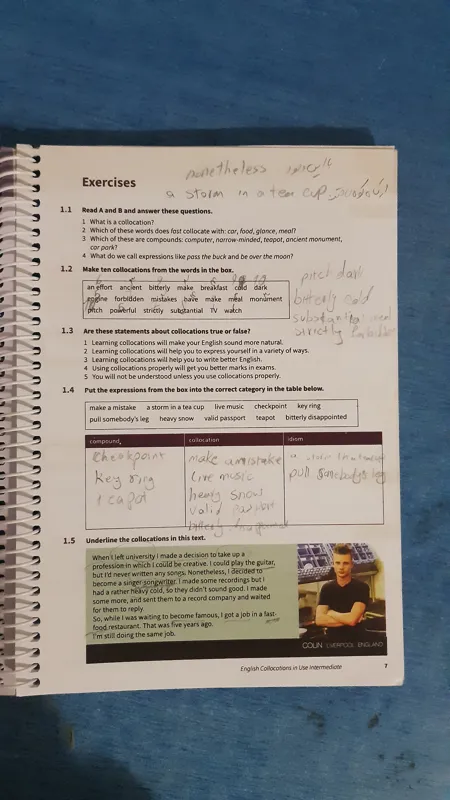 nonetheless
Exercises
a storm in a tea cup
1.1 Read A and B and answer these questions.
1 What is a collocation?
2 Which of these words does fast collocate with: car, food, glance, meal?
3 Which of these are compounds: computer, narrow-minded, teapot, ancient monument,
car park?
4 What do you call expressions like pass the buck and be over the moon?
1.2 Make ten collocations from the words in the box.
pitch dark
an effort ancient bitterly make breakfast cold dark
engine forbidden mistakes have make meal monument
pitch powerful strictly substantial TV watch
bitterly cold
substantial meal
strictly forbidden
1.3 Are these statements about collocations true or false?
1 Learning collocations will make your English sound more natural.
2 Learning collocations will help you to express yourself in a variety of ways.
3 Learning collocations will help you to write better English.
4 Using collocations properly will get you better marks in exams.
5 You will not be understood unless you use collocations properly.
1.4 Put the expressions from the box into the correct category in the table below.
make a mistake a storm in a tea cup live music checkpoint key ring
pull somebody's leg heavy snow valid passport teapot bitterly disappointed
compound collocation idiom
checkpoint make a mistake a storm in a tea cup
key ring live music pull somebody's leg
teapot heavy snow
valid passport
1.5 Underline the collocations in this text.
When I left university I made a decision to take up a
profession in which I could be creative. I could play the guitar,
but I'd never written any songs. Nonetheless, I decided to
become a singer-songwriter. I made some recordings but I
had a rather heavy cold, so they didn't sound good. I made
some more, and sent them to a record company and waited
for them to reply.
So, while I was waiting to become famous, I got a job in a fast-
food restaurant. That was five years ago.
I'm still doing the same job.
COLIN LIVERPOOL ENGLAND
English Collocations in Use Intermediate 7